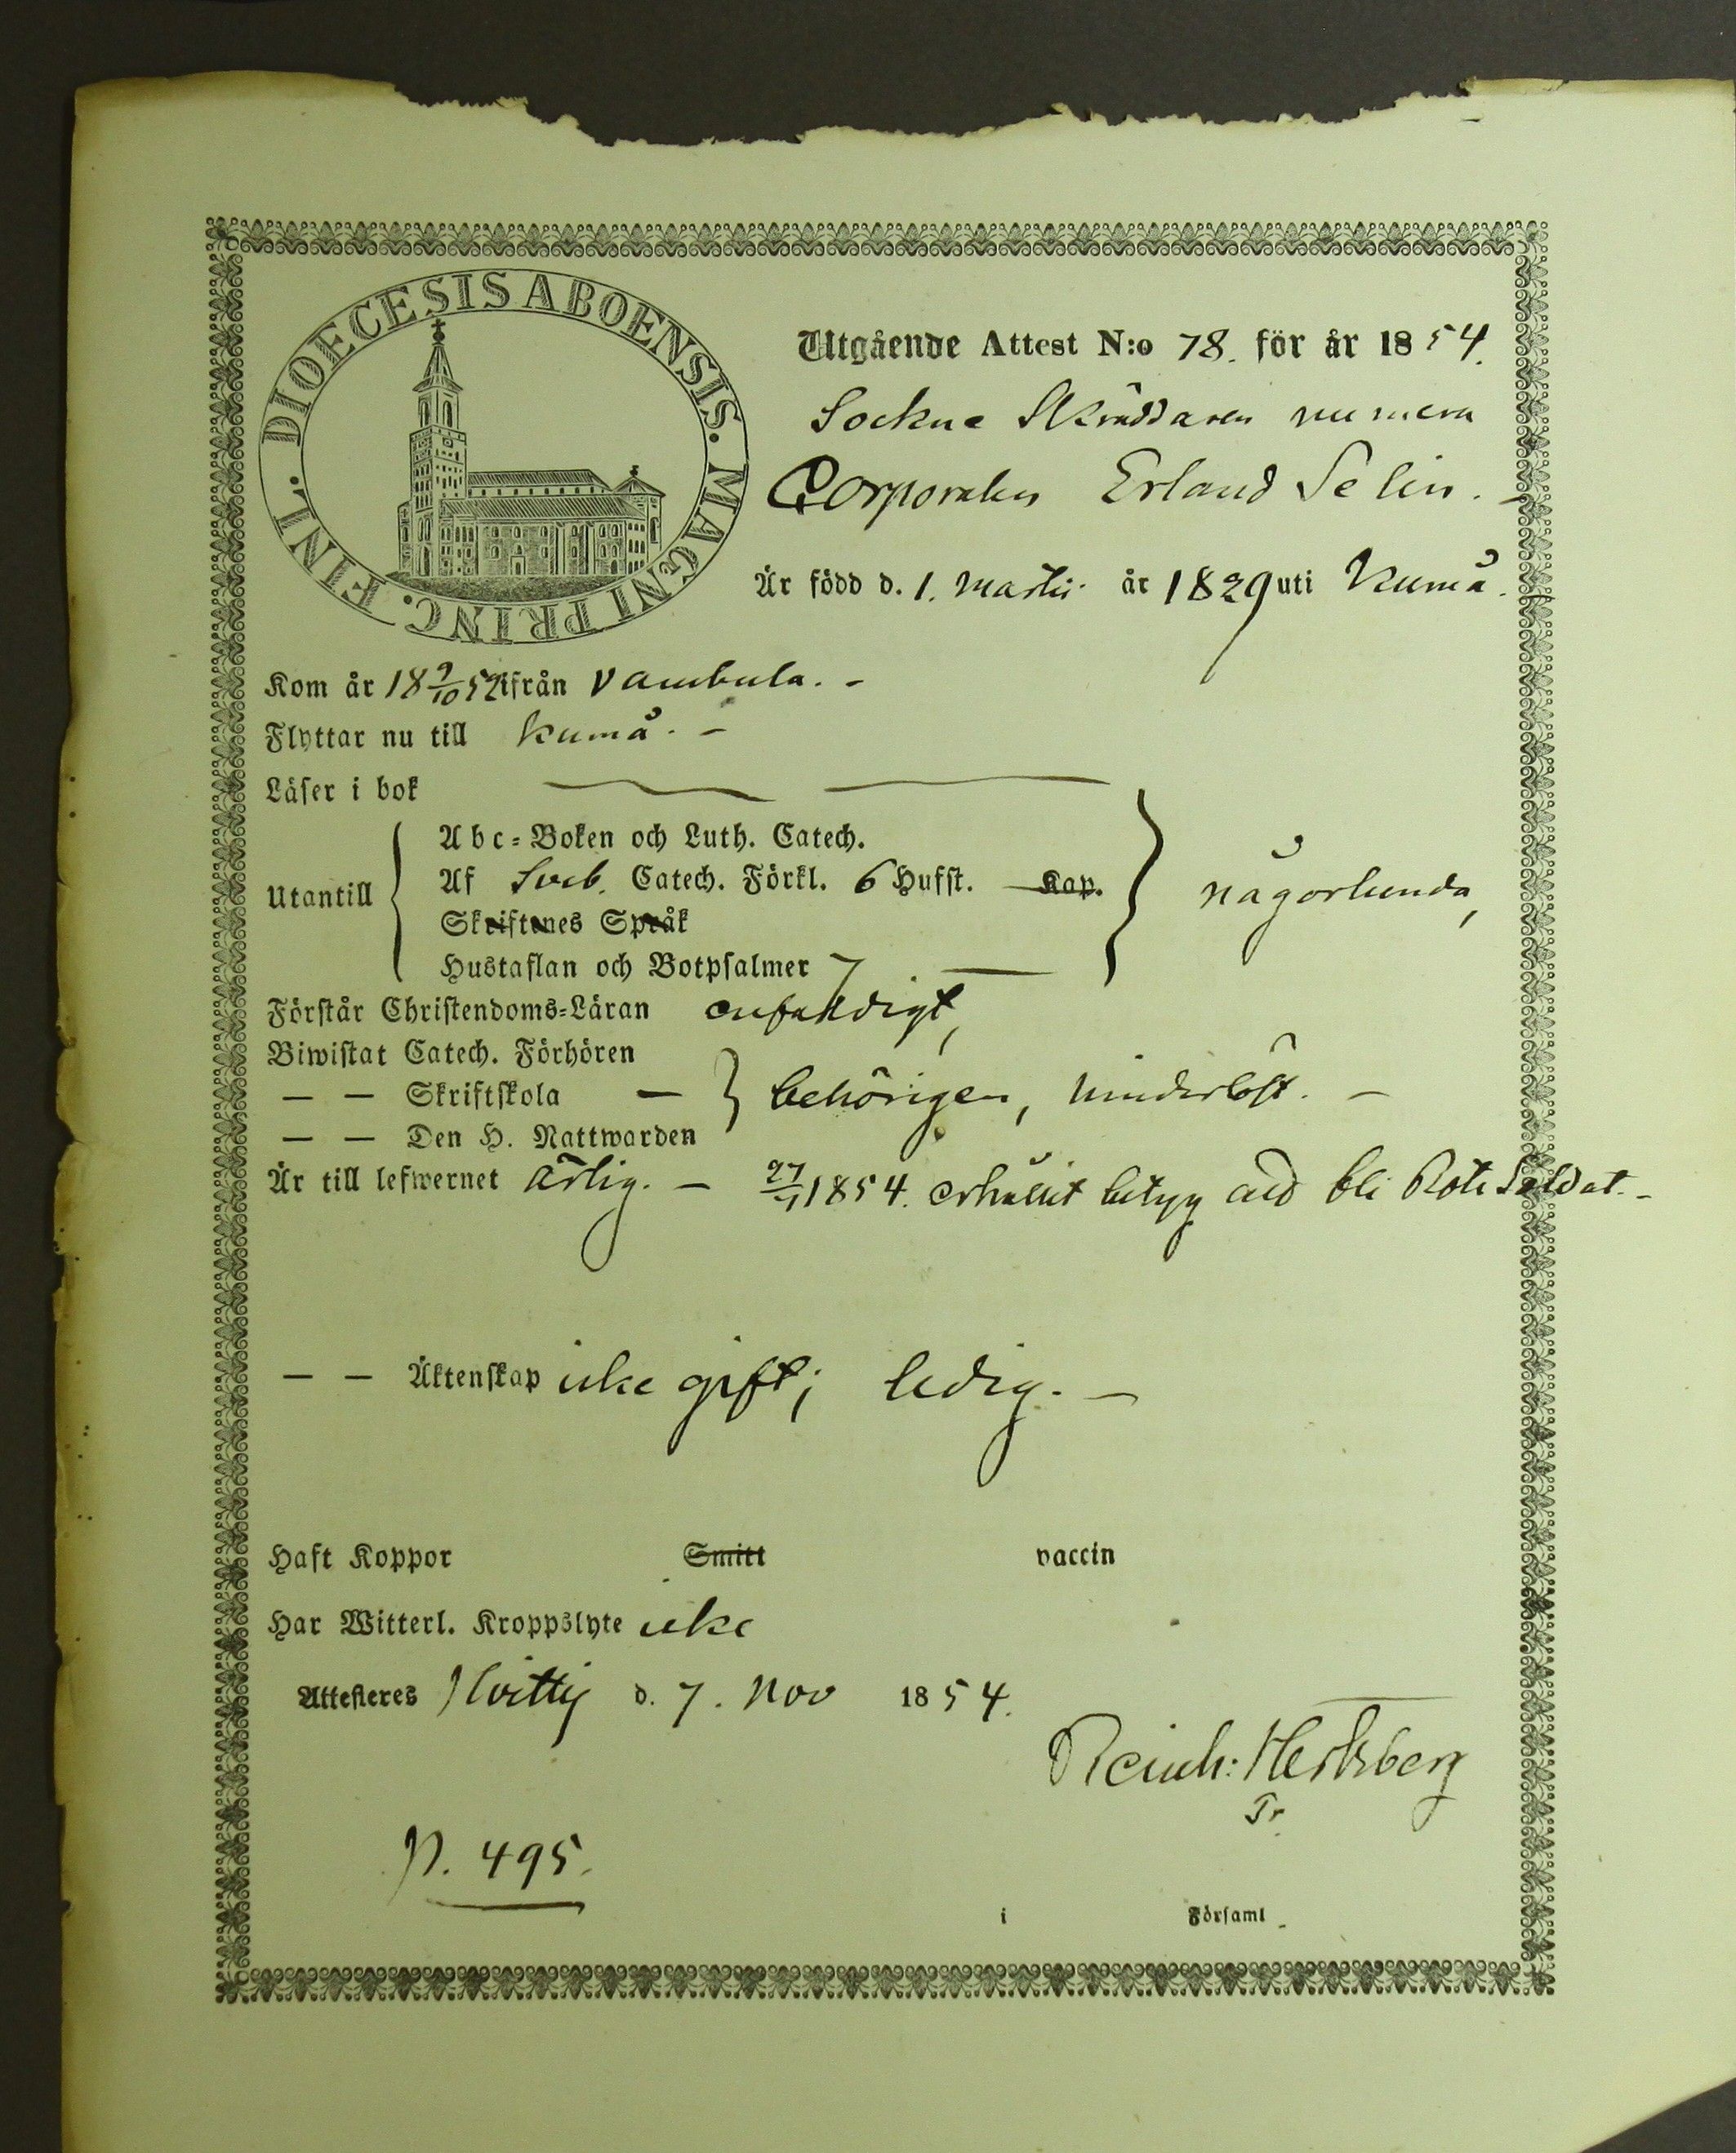 DIOECESIS ABOENSIS. MAGNI PRINC. FINL.
Utgående Attest N:o 78. för år 1854.
Sockne Skräddaren numera
Corporalen Erland Selin.
Är född d. 1. Martii år 1829 uti Kumå.
Kom år 18 9/10 52 ifrån Vambula. -
Flyttar nu till Kumå. -
Läser i bok
Abc-Boken och Luth. Catech.
Utantill
Af Sveb. Catech. Förkl. 6 Hufst. Kap.
någorlunda,
Skriftenes Språk
Hustaflan och Botpsalmer 7
Förstår Christendoms-Läran enfaldigt,
Biwistat Catech. Förhören
— — Skriftskola — behörigen, hinderlöst. -
— — Den H. Nattwarden
Är till lefwernet ärlig. — 1854. erhållit betyg att bli Rote Soldat. -
— — Äktenskap icke gift; ledig. —
Haft Koppor Smitt vaccin
Har Witterl. Kroppslyte icke
Attesteres Hvittis d. 7. Nov 1854.
Reinh: Hertzberg
P. 495.
i Församl